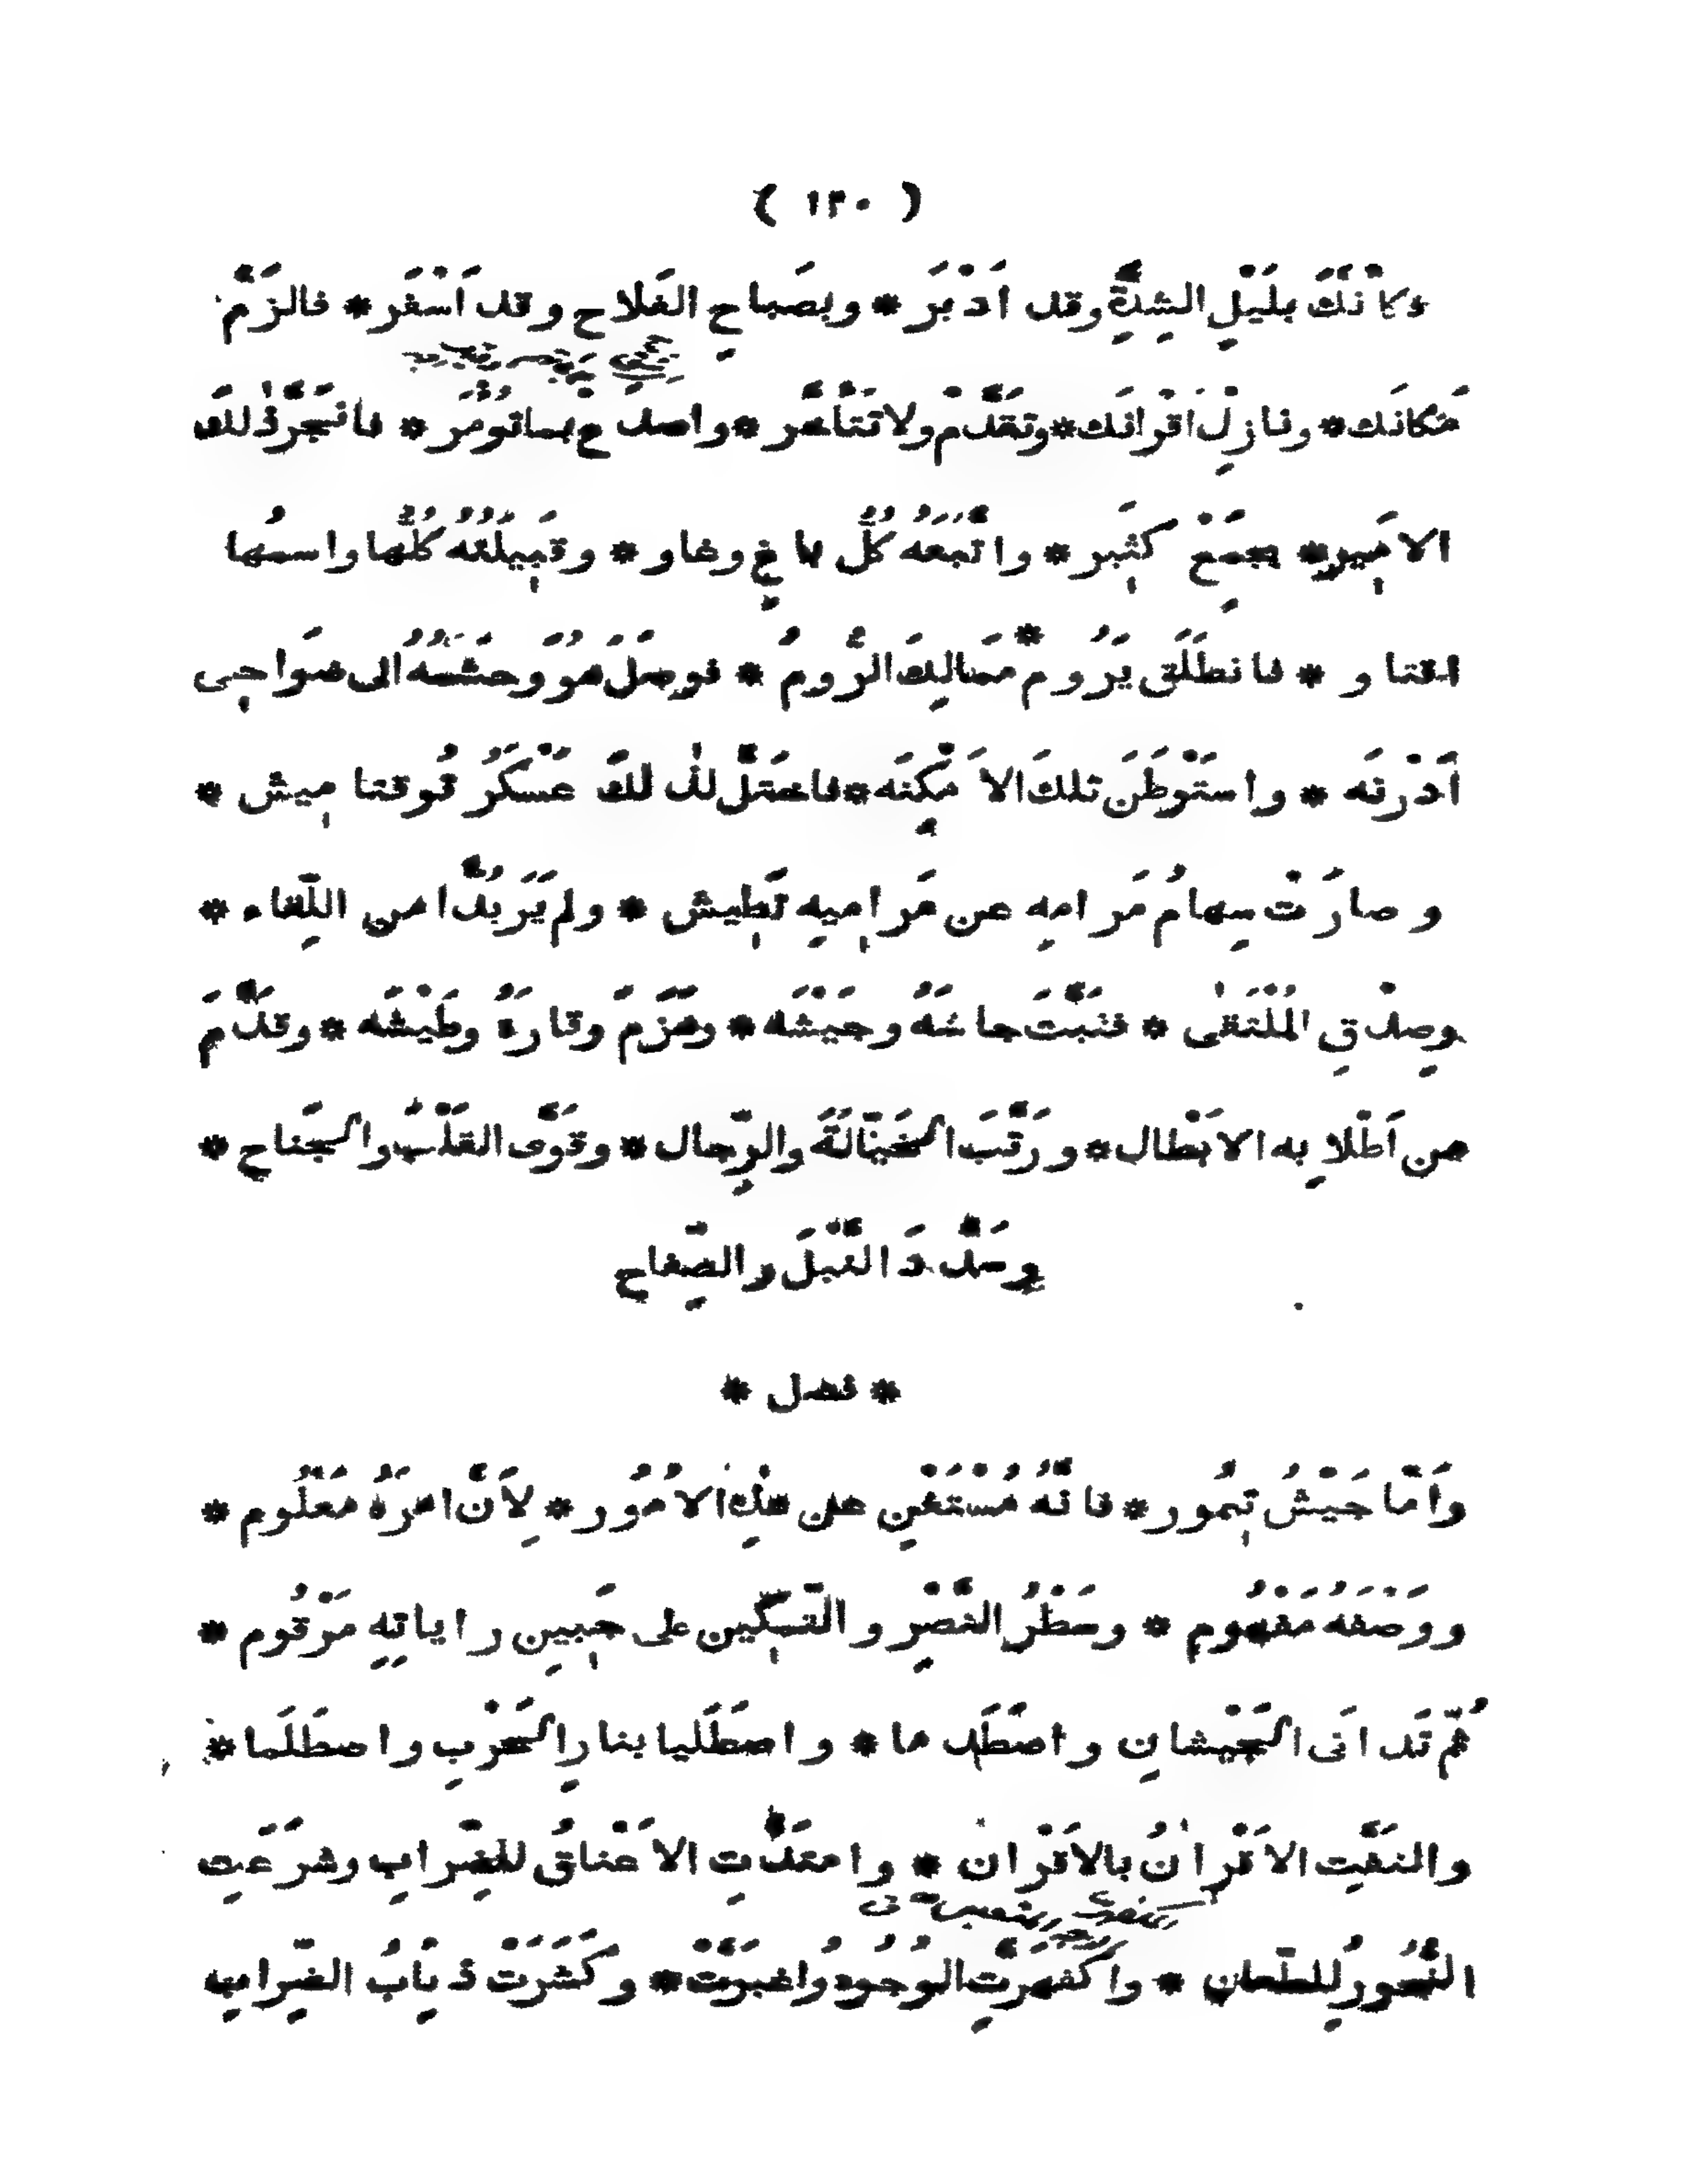 ( ١٣٠ )
وكاَنْكَ بلَيْلِ الشِدَّةِ وقد اَدْبَرَ * وبصَباحِ الفَلاح وقد اَسْفَر * فالزَمْ
مَكانَك * ونازِلْ اَقْرانَك * وتقَدَّمْ ولا تَتَأَخَّر * واصدَعْ بما تُؤْمَر * فانجَرَّ ذٰلكَ
الاَمِير * بجَمْعٍ كَثِير * واتَّبَعَهُ كُلُّ باغٍ وغاو * وقَبِيلَتُه كُلُّها واسمُها
اقتاو * فانطَلَق يَرُوم * مَمَالِكَ الرُّوم * فوصَلَ هُوَ وحَشَمُهُ الى ضَواحِى
اَدْرنَه * واستَوْطَنَ تلكَ الاَمْكِنَه * فاختَلَّ لذٰلكَ عَسْكَرُ تُوقتاميش *
وصارَتْ سِهامُ مَرامِه عن مَرامِيهِ تَطِيش * ولم يَرَ بُدًّا من اللِّقاء *
وصِدْقِ المُلْتَقٰى * فثبَّتَ جاشَهُ وجَيْشَه * وهَزَم وَقارَهُ وطَيْشَه * وقدَّمَ
من اَطْلابِه الاَبْطال * ورَتَّبَ الخَيّالَةَ والرِّجال * وقوَّى القَلْبَ والجَناح *
وسَدَّدَ النَّبْلَ والصِّفاح
* فصل *
واَمّا جَيْشُ تِيمُور * فانَّهُ مُسْتَغْنٍ عن هٰذِهِ الاُمُور * لِاَنَّ امرَهُ مَعْلُوم *
ووَصْفَهُ مَفْهُوم * وسَطْرُ النَّصْرِ والتَّمكِين على جَبِينِ راياتِهِ مَرْقُوم *
ثُمَّ تَدانَى الجَيْشانِ واصْطَدما * واصطَلَيا بنارِ الحَرْبِ واصطَلَما *
والتفَّتِ الاَقْرانُ بالاَقْران * وامتَدَّتِ الاَعْناقُ للضِّرابِ وشَرَعَتِ
النُّحُورُ للطِّعان * واكْفَهَرَّتِ الوُجُوهُ واغبَرَّتْ * وكَشَرَتْ ذِئَابُ الضِّرابِ